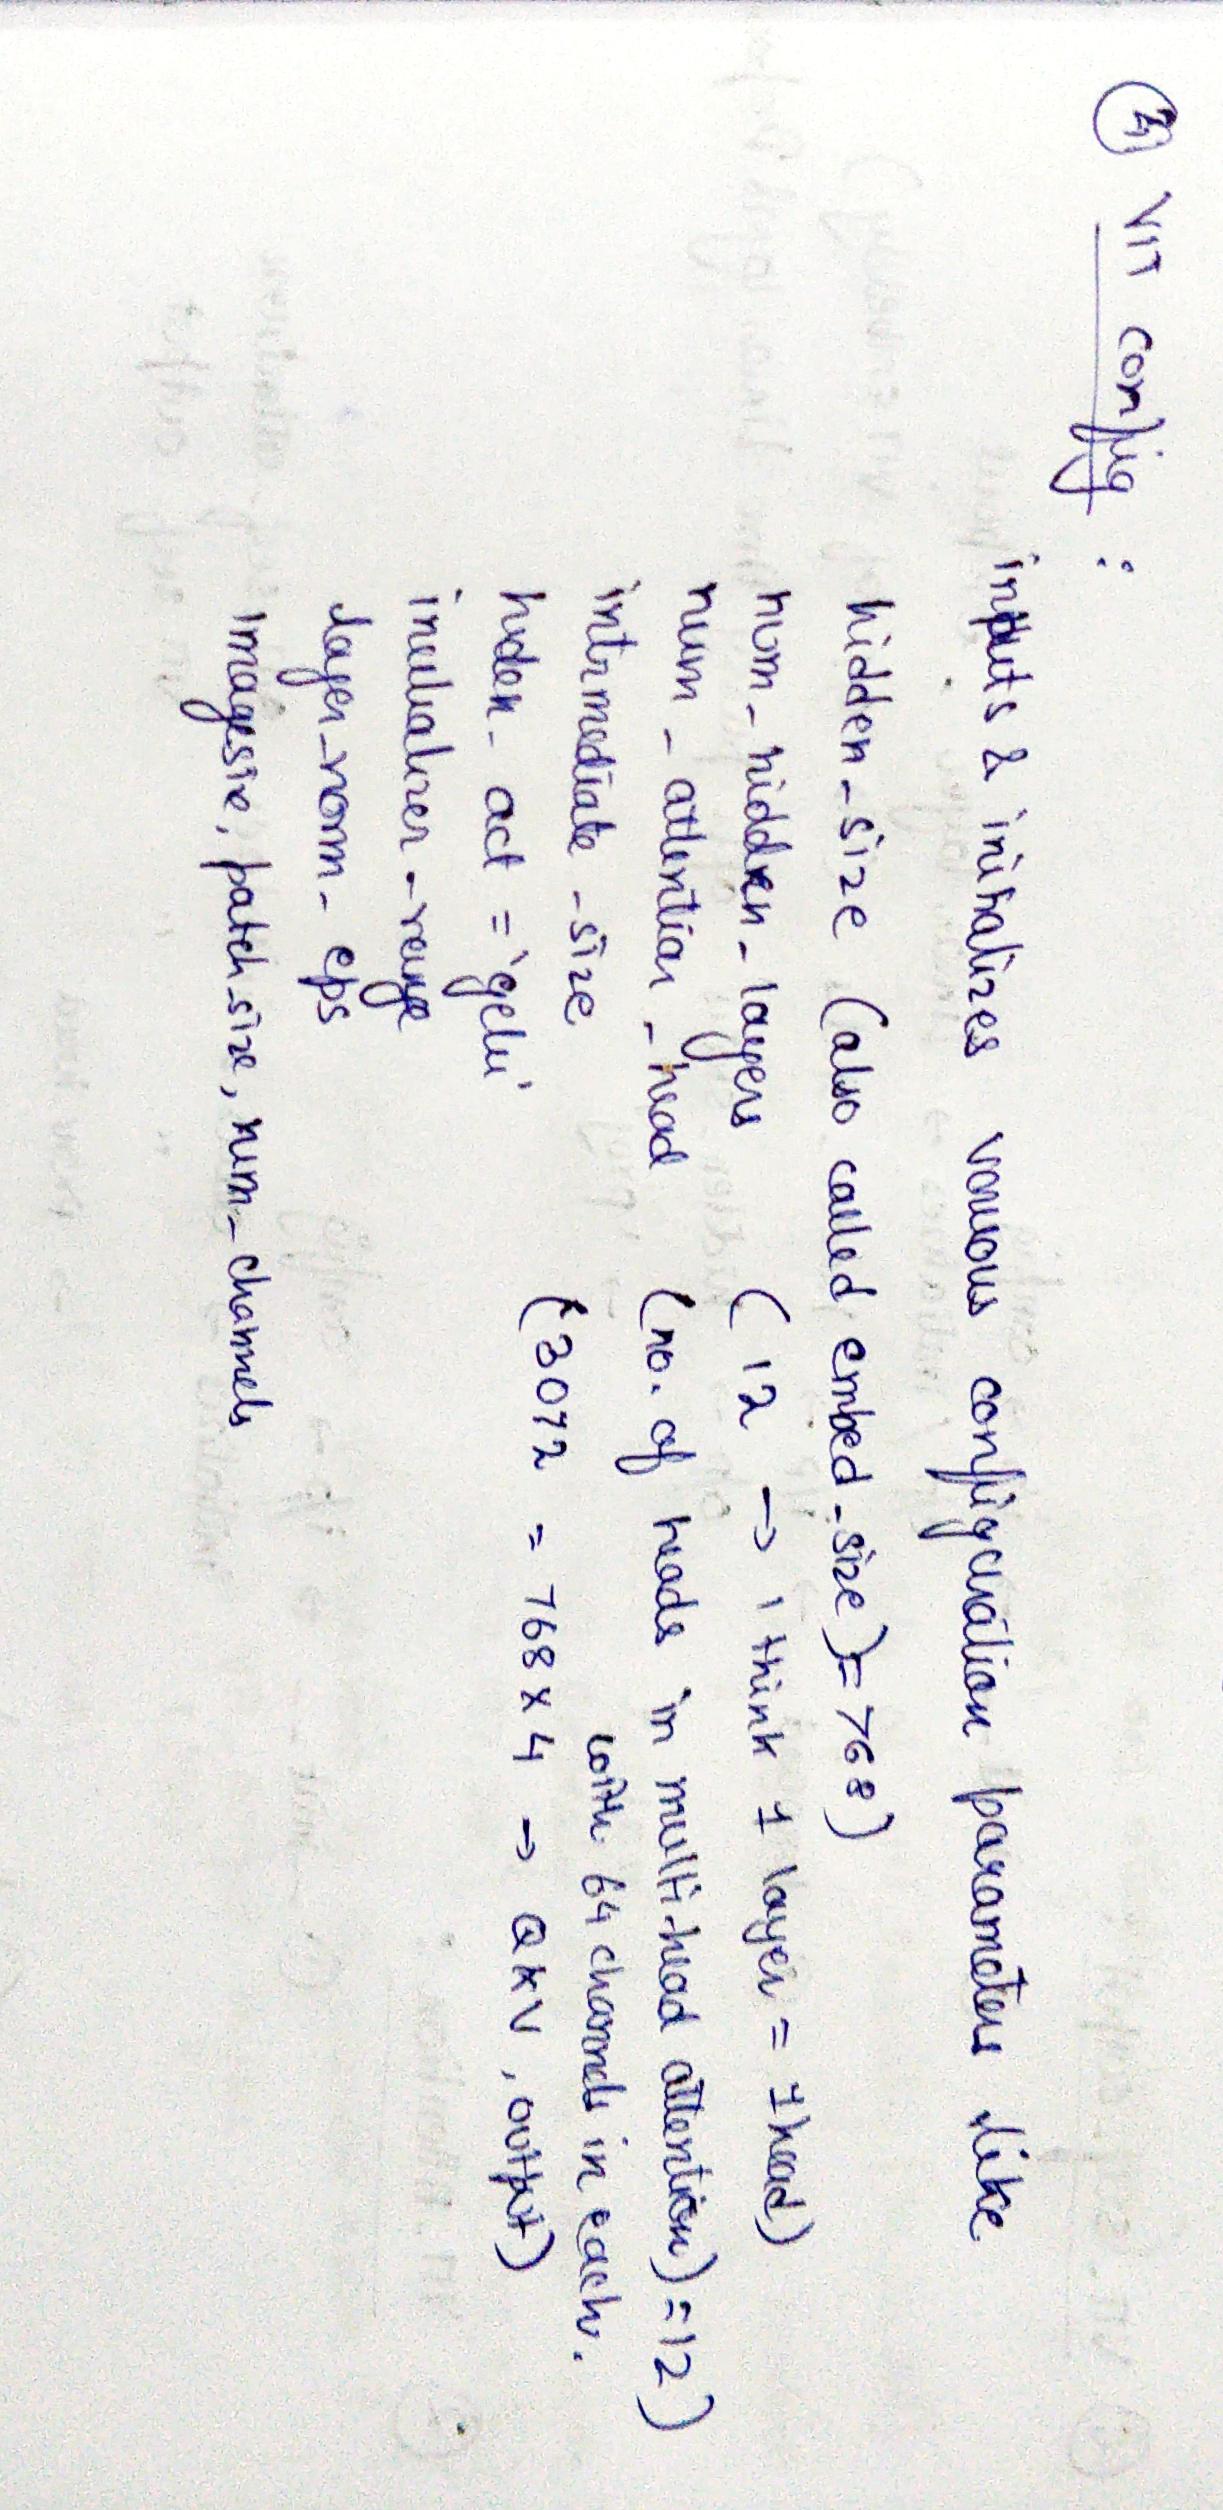 VIT config :
inputs & initializes various configuration parameters like
hidden-size (also called embed-size) = 768)
num-hidden-layers (12 → I think 1 layer = 1 head)
num-attention-head (no. of heads in multi-head attention) = 12)
with 64 channels in each.
intrmediate-size (3072 = 768 x 4 → QKV, output)
hidden-act = 'gelu'
initializer-range
layer-norm-eps
imagesize, patch-size, num-channels